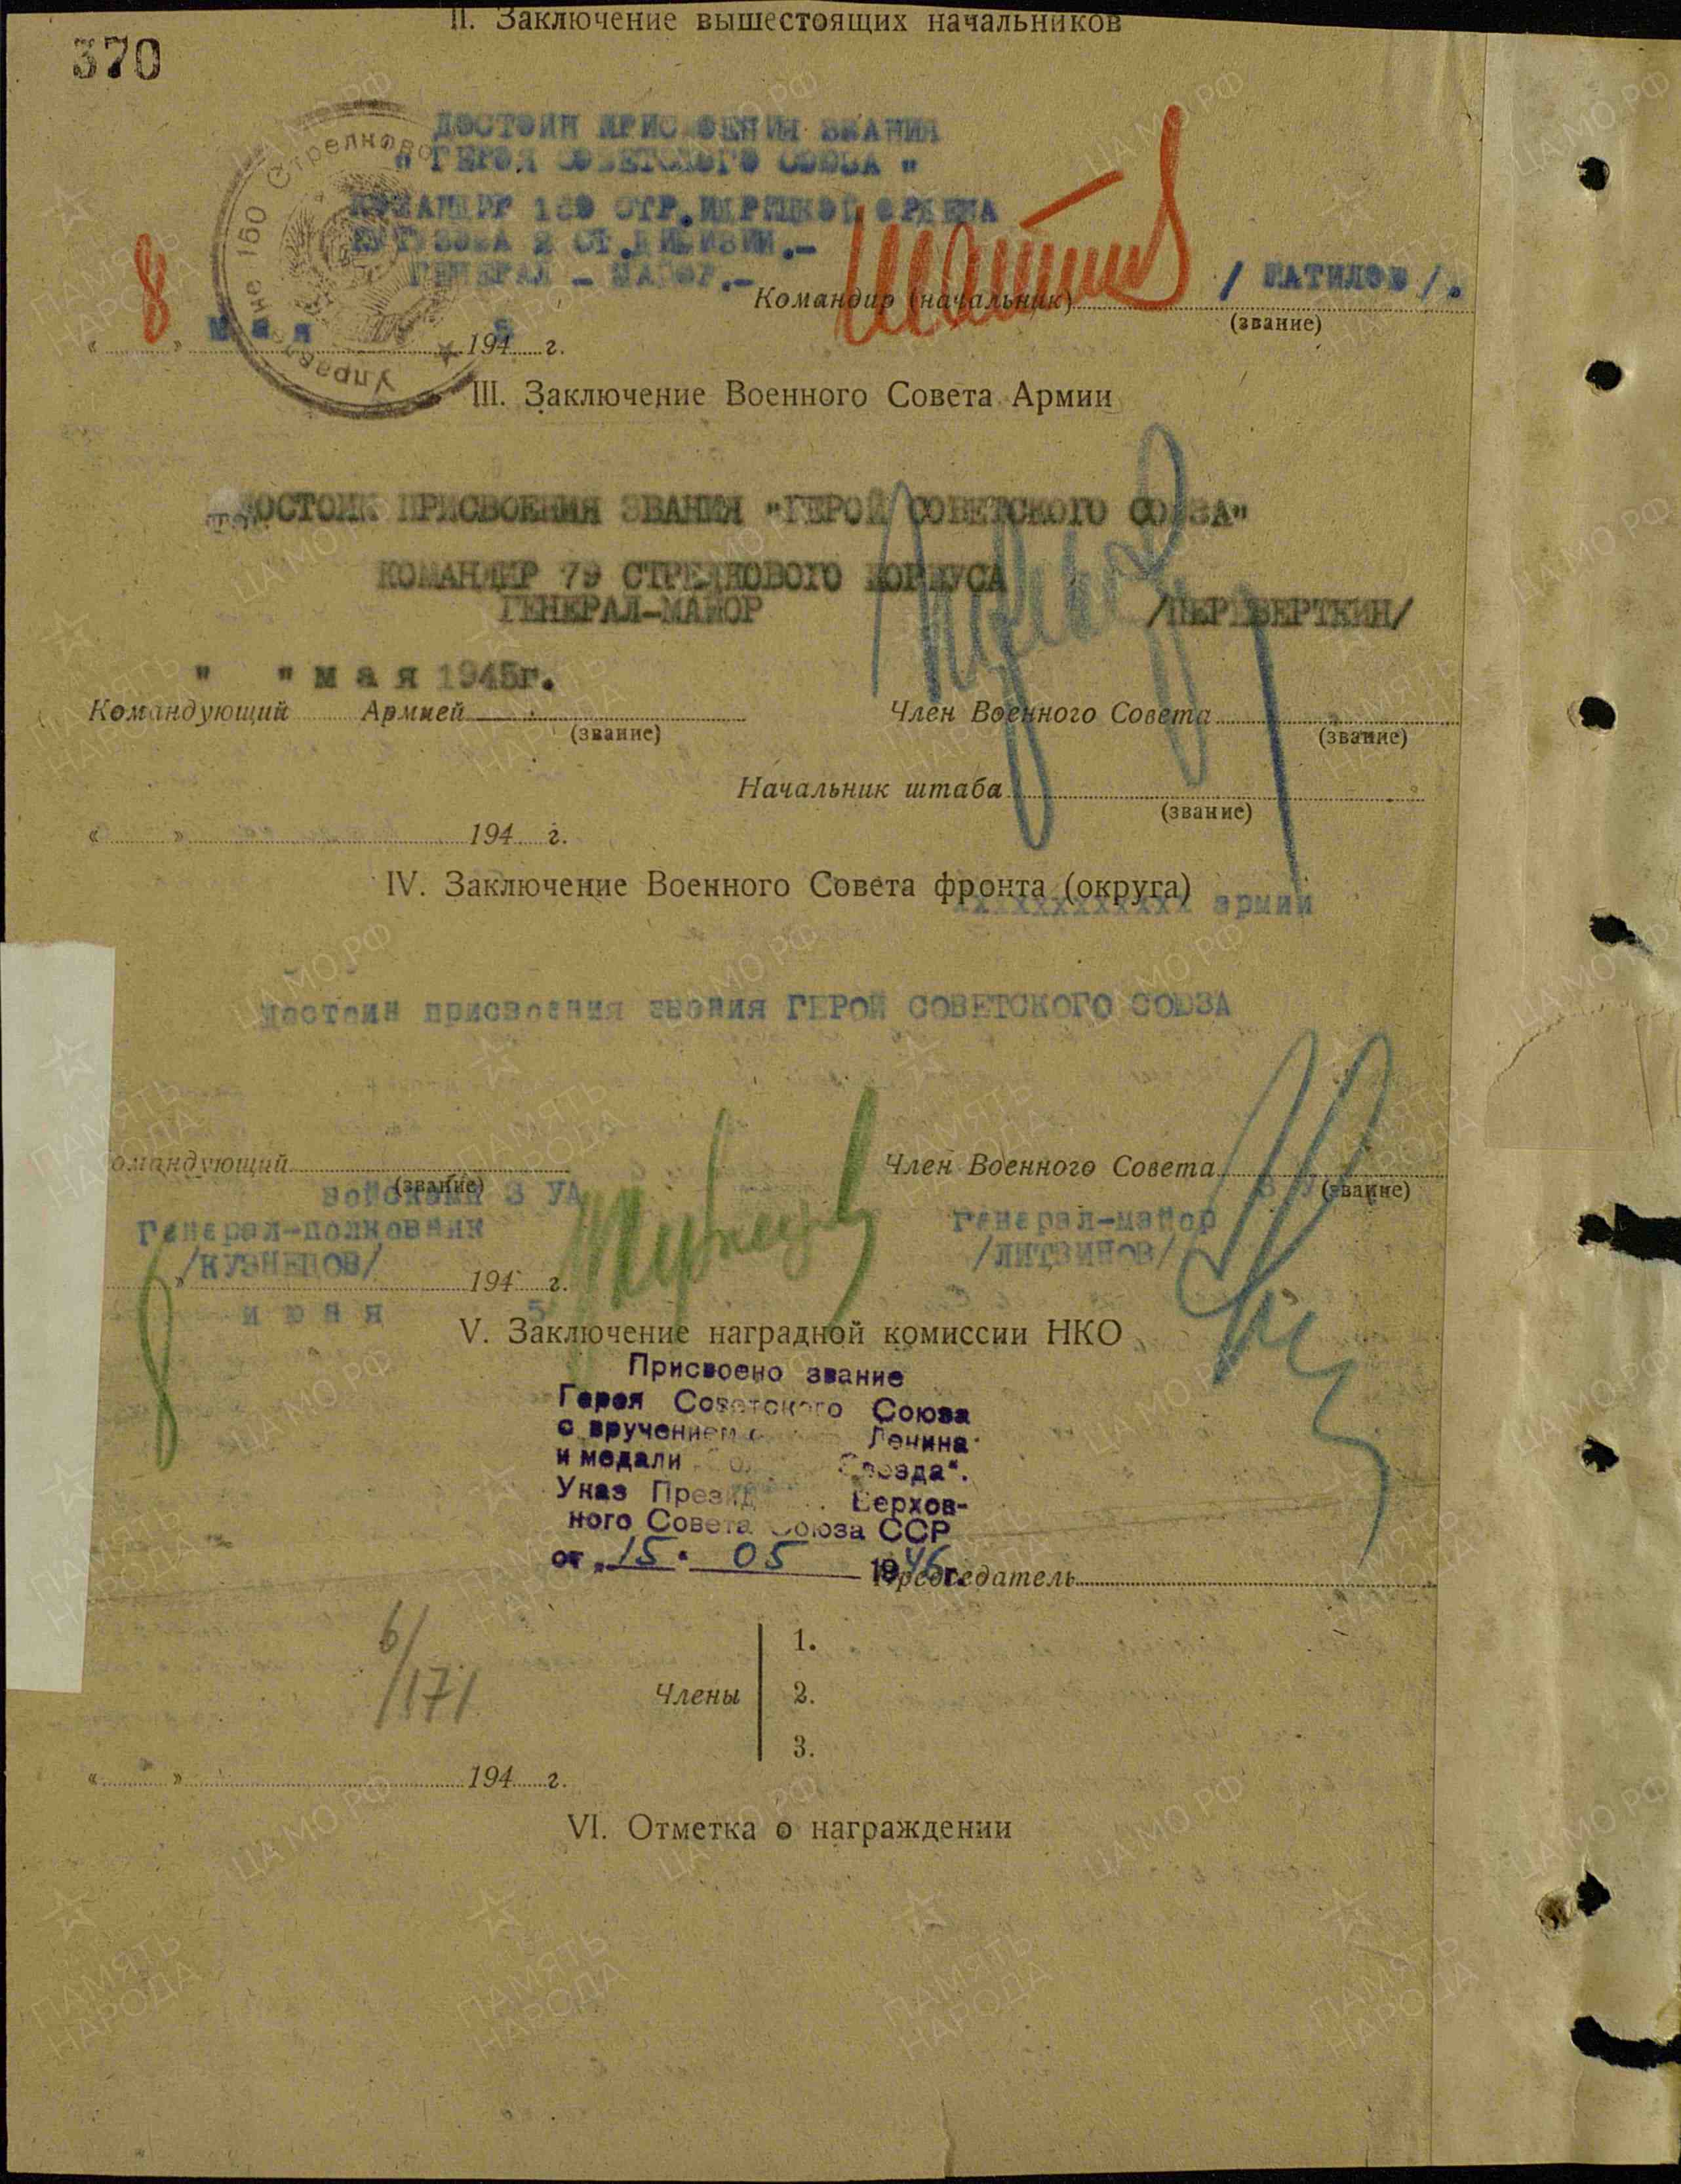 II. Заключение вышестоящих начальников
370
ДОСТОИН ПРИСВОЕНИЯ ЗВАНИЯ
" ГЕРОЯ СОВЕТСКОГО СОЮЗА "
КОМАНДИР 150 СТР.ИДРИЦКОЙ ОРДЕНА
КУТУЗОВА 2 СТ.ДИВИЗИИ.-
ГЕНЕРАЛ - МАЙОР.-
Командир (начальник) / ШАТИЛОВ /.
(звание)
« 8 » мая 1945 г.
III. Заключение Военного Совета Армии
ДОСТОИН ПРИСВОЕНИЯ ЗВАНИЯ "ГЕРОЙ СОВЕТСКОГО СОЮЗА"
КОМАНДИР 79 СТРЕЛКОВОГО КОРПУСА
ГЕНЕРАЛ-МАЙОР /ПЕРЕВЕРТКИН/
" " мая 1945г.
Командующий Армией Член Военного Совета
(звание) (звание)
Начальник штаба
(звание)
« » 194 г.
IV. Заключение Военного Совета фронта (округа) армии
достоин присвоения звания ГЕРОЙ СОВЕТСКОГО СОЮЗА
омандующий Член Военного Совета
(звание) (звание)
войсками 3 УА
Генерал-полковник генерал-майор
/КУЗНЕЦОВ/ /ЛИТВИНОВ/
» 194 г.
июня 5
V. Заключение наградной комиссии НКО
Присвоено звание
Героя Советского Союза
с вручением Ленина
и медали Звезда“.
Указ Презид Верхов-
ного Совета Союза ССР
от „15“ 05 1946г.
Председатель
6/171
Члены
1.
2.
3.
« » 194 г.
VI. Отметка о награждении